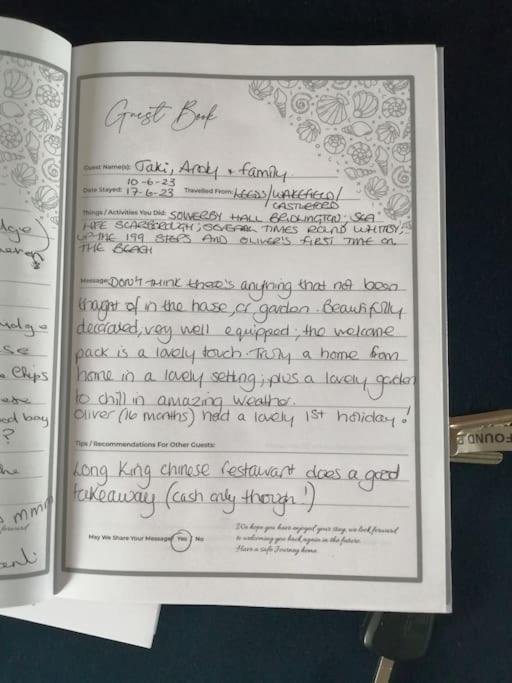 Guest Book
Guest Name(s): Jaki, Andy + family.
10-6-23
Date Stayed: 17-6-23 Travelled From: LEEDS/WAKEFIELD/
CASTLEFORD
Things / Activities You Did: SEWERBY HALL BRIDLINGTON; SEA
LIFE SCARBOROUGH; SEVERAL TIMES ROUND WHITBY;
UP THE 199 STEPS AND OLIVER'S FIRST TIME ON
THE BEACH
Message: Don't think there's anything that not been
thought of in the house, or garden. Beautifully
decorated, very well equipped; the welcome
pack is a lovely touch. Truly a home from
home in a lovely setting; plus a lovely garden
to chill in amazing weather.
Oliver (16 months) had a lovely 1st holiday!
Tips / Recommendations For Other Guests:
Long King chinese restaurant does a good
takeaway (cash only though!)
May We Share Your Message? Yes / No
We hope you have enjoyed your stay, we look forward
to welcoming you back again in the future.
Have a safe Journey home.
Chips
bay
?
mmm
forward
FOUND